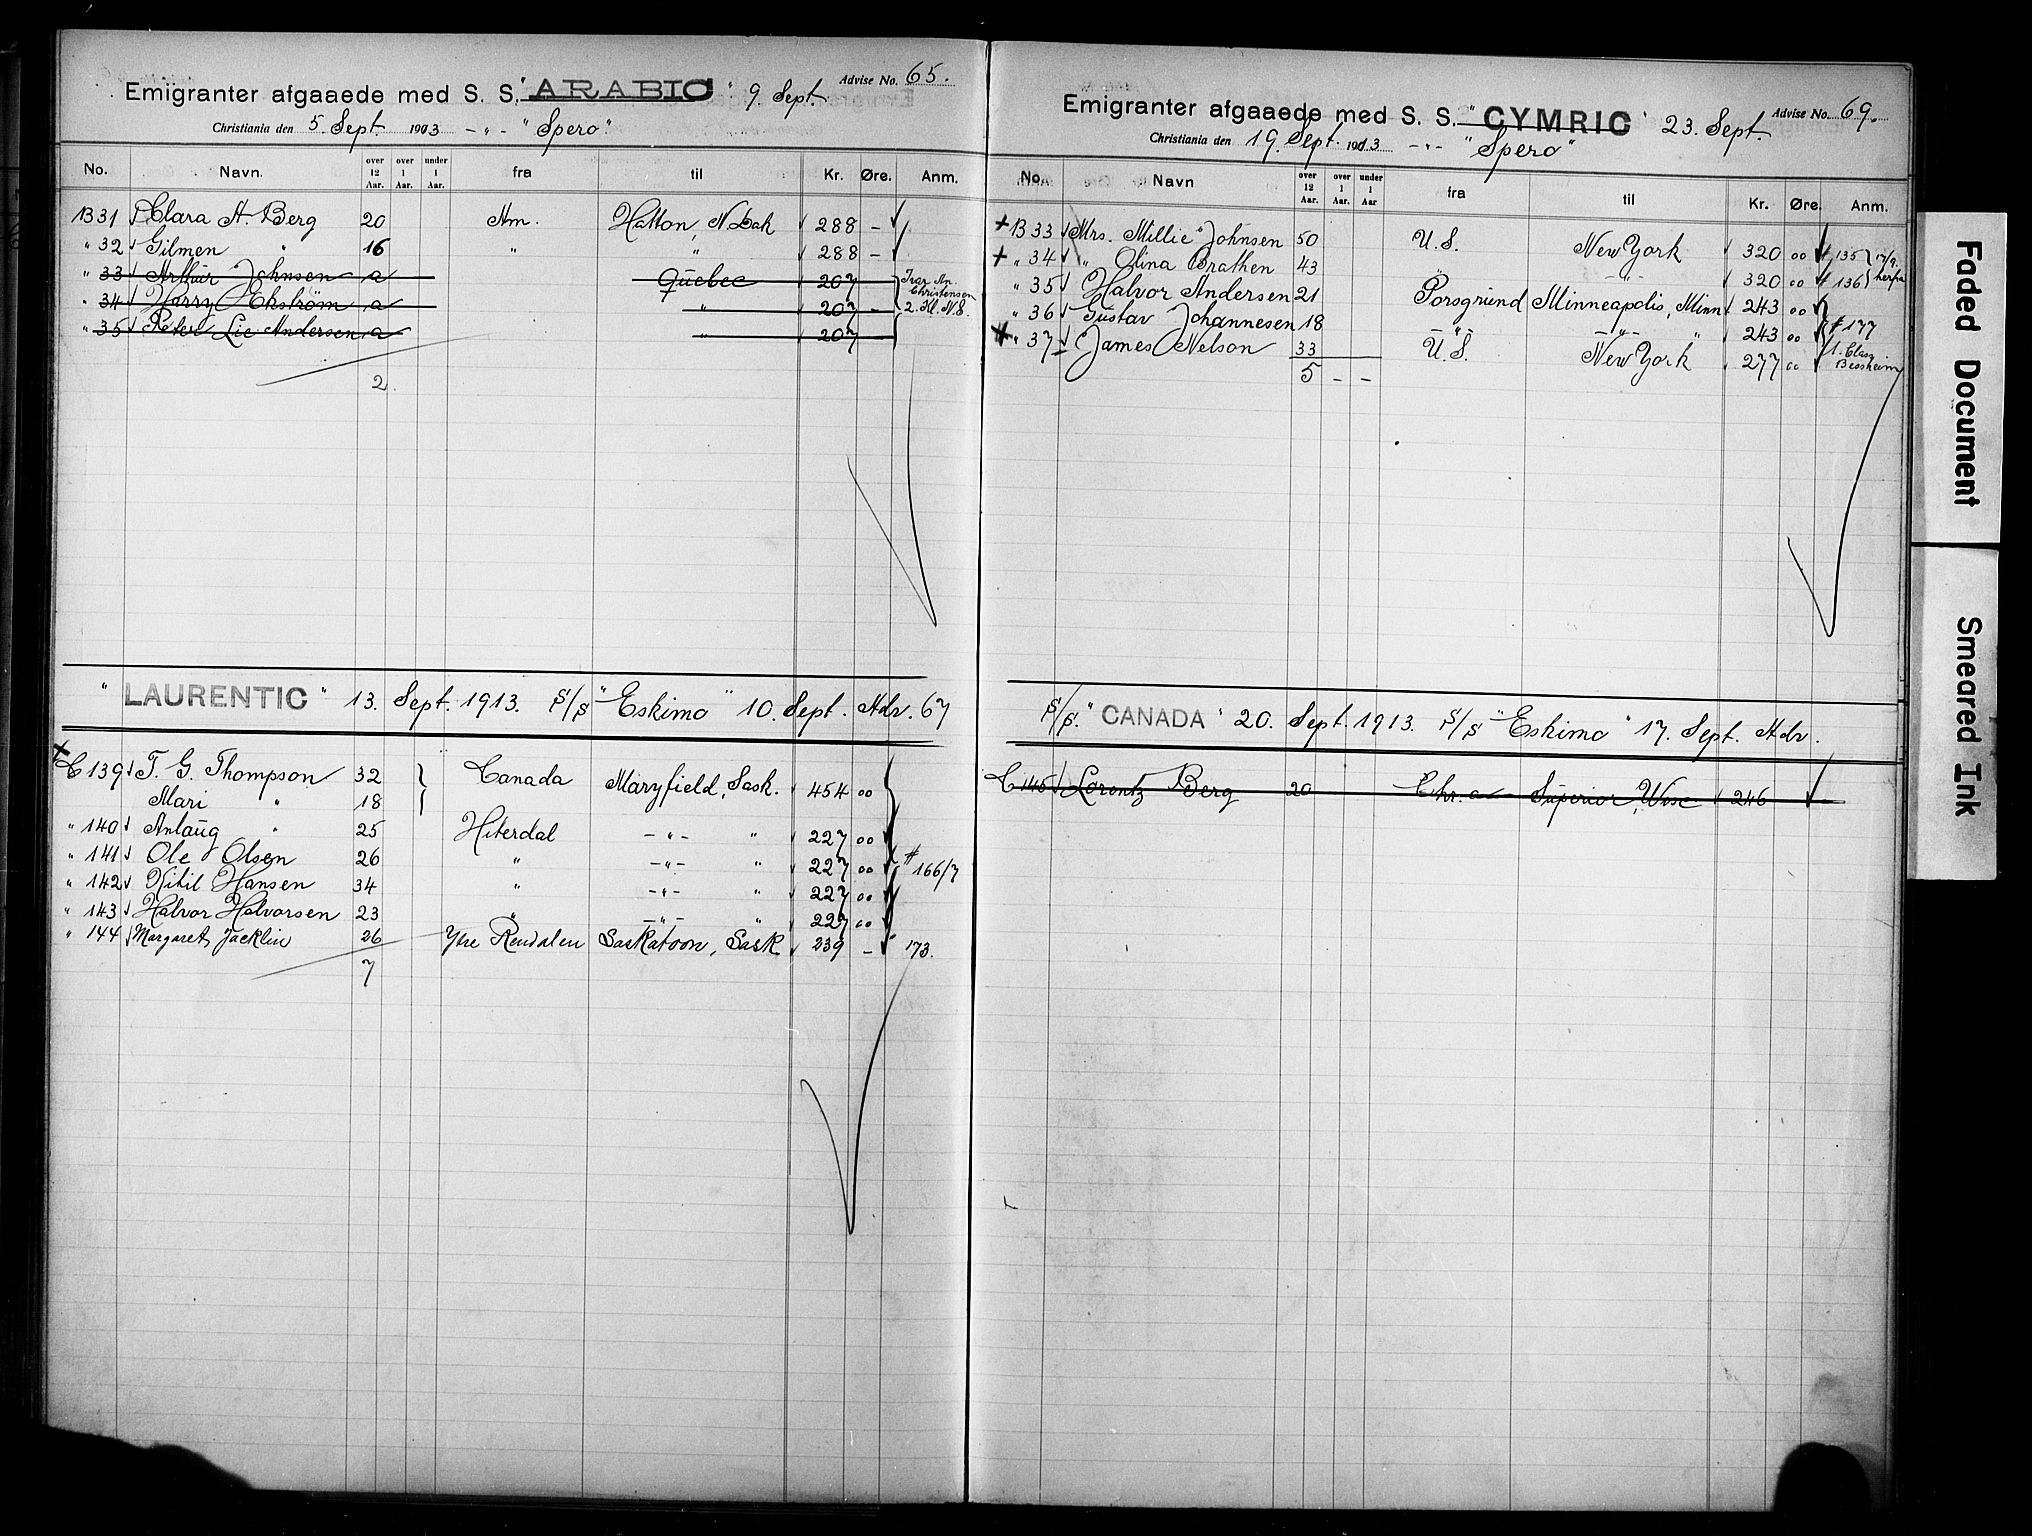 Emigranter afgaaede med S. S. "ARABIC" 9. Sept. Advise No. 65.
Christiania den 5. Sept 1913 - " - "Spero"
No. Navn. over 12 Aar. over 1 Aar. under 1 Aar. fra til Kr. Øre. Anm.
B 31 Clara A. Berg 20 Am. Hatton, N. Dak 288 -
" 32 Gilmen " 16 " " 288 -
" 33 Arthur Johnsen a Quebec 207 Ivar An. Christensen
" 34 Harry Ekström a " 207 - 2. Kl. N.S.
" 35 Peter Lie Andersen a " 207
2
"LAURENTIC" 13. Sept. 1913. S/S "Eskimo" 10. Sept. Adv. 67
C 139 T. G. Thompson 32 } Canada Maryfield, Sask. 454 00
Mari " 18
" 140 Anlaug " 25 Hiterdal - " - " 227 00
" 141 Ole Olsen 26 " - " - " 227 00 # 166/7
" 142 Kitil Hansen 34 " - " - " 227 00
" 143 Halvor Halvorsen 23 " - " - " 227 00
" 144 Margaret Jacklin 26 Ytre Rendalen Saskatoon, Sask 239 - " 173.
7
Emigranter afgaaede med S. S. "CYMRIC" 23. Sept. Advise No. 69.
Christiania den 19. Sept. 1913 - " - "Spero"
No. Navn over 12 Aar. over 1 Aar. under 1 Aar fra til Kr. Øre. Anm.
+ B 33 Mrs. Millie Johnsen 50 U.S. New York 320 00 # 135
+ " 34 " Olina Brathen 43 " " 320 00 # 136
" 35 Halvor Andersen 21 Porsgrund Minneapolis, Minn 243 00
" 36 Gustav Johannesen 18 - " - - " - " 243 00 # 177
" 37 James Nelson 33 U.S. New York 277 00 1. Class Bessheim
5 - -
S/S. "CANADA" 20. Sept. 1913. S/S "Eskimo" 17. Sept. Adv.
C 145 Lorentz Berg 20 Chr.a Superior, Wisc 246
Faded Document
Smeared Ink